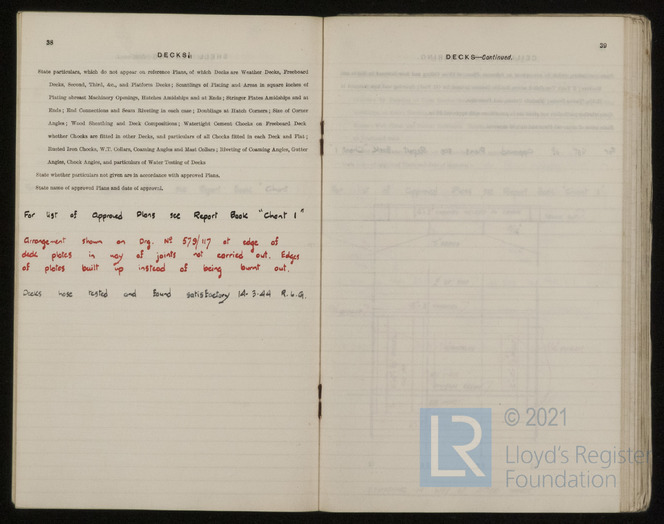 38
DECKS.
State particulars, which do not appear on reference Plans, of which Decks are Weather Decks, Freeboard
Decks, Second, Third, &c., and Platform Decks; Scantlings of Plating and Areas in square inches of
Plating abreast Machinery Openings, Hatches Amidships and at Ends; Stringer Plates Amidships and at
Ends; End Connections and Seam Riveting in each case; Doublings at Hatch Corners; Size of Corner
Angles; Wood Sheathing and Deck Compositions; Watertight Cement Chocks on Freeboard Deck
whether Chocks are fitted in other Decks, and particulars of all Chocks fitted in each Deck and Flat;
Riveted Iron Chocks, W.T. Collars, Coaming Angles and Mast Collars; Riveting of Coaming Angles, Gutter
Angles, Chock Angles, and particulars of Water Testing of Decks
State whether particulars not given are in accordance with approved Plans.
State name of approved Plans and date of approval.
For list of approved Plans see Report Book "Chant 1"
Arrangement shown on Drg. No 579/117 at edge of
deck plates in way of joints not carried out. Edges
of plates built up instead of being burnt out.
Decks hose tested and found satisfactory 14.3.44 R.L.G.
39
DECKS—Continued.
LR
© 2021
Lloyd's Register
Foundation